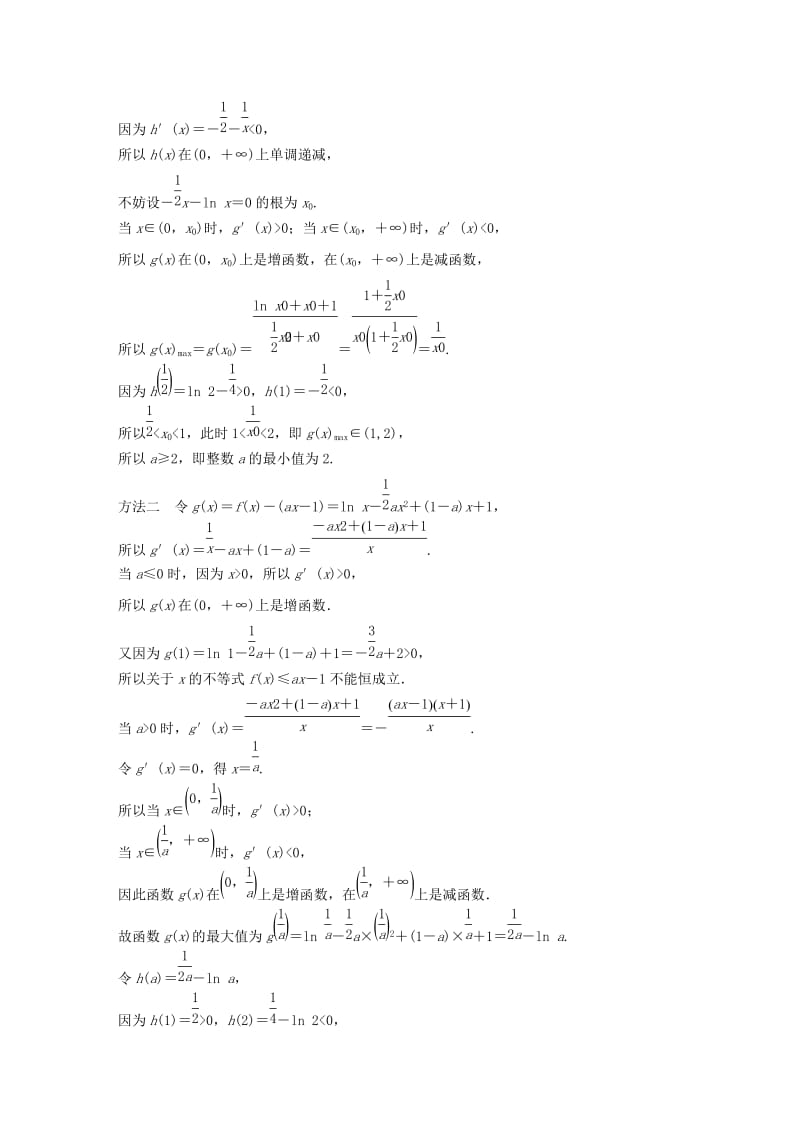 因为 h′(x)=-1/2-1/x<0,
所以 h(x)在(0,+∞)上单调递减,
不妨设-1/2x-ln x=0 的根为 x₀.
当 x∈(0,x₀)时,g′(x)>0;当 x∈(x₀,+∞)时,g′(x)<0,
所以 g(x)在(0,x₀)上是增函数,在(x₀,+∞)上是减函数,
所以 g(x)max=g(x₀)=(ln x0+x0+1)/(1/2x02+x0)=(1+1/2x0)/(x0(1+1/2x0))=1/x0.
因为 h(1/2)=ln 2-1/4>0,h(1)=-1/2<0,
所以1/2<x₀<1,此时 1<1/x0<2,即 g(x)max∈(1,2),
所以 a≥2,即整数 a 的最小值为 2.
方法二 令 g(x)=f(x)-(ax-1)=ln x-1/2ax²+(1-a)x+1,
所以 g′(x)=1/x-ax+(1-a)=(-ax2+(1-a)x+1)/x.
当 a≤0 时,因为 x>0,所以 g′(x)>0,
所以 g(x)在(0,+∞)上是增函数.
又因为 g(1)=ln 1-1/2a+(1-a)+1=-3/2a+2>0,
所以关于 x 的不等式 f(x)≤ax-1 不能恒成立.
当 a>0 时,g′(x)=(-ax2+(1-a)x+1)/x=-((ax-1)(x+1))/x.
令 g′(x)=0,得 x=1/a.
所以当 x∈(0,1/a)时,g′(x)>0;
当 x∈(1/a,+∞)时,g′(x)<0,
因此函数 g(x)在(0,1/a)上是增函数,在(1/a,+∞)上是减函数.
故函数 g(x)的最大值为 g(1/a)=ln 1/a-1/2a×(1/a)²+(1-a)×1/a+1=1/2a-ln a.
令 h(a)=1/2a-ln a,
因为 h(1)=1/2>0,h(2)=1/4-ln 2<0,